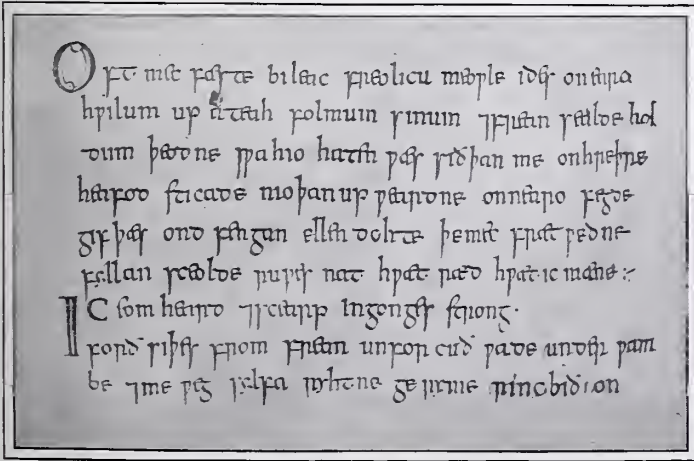 OFT mec fæste bileac freolicu meoƿle ides on earca
hƿilum up ateah folmum sinum ⁊frean sealde hol
dum þeodne sƿa hio haten ƿæs siðþan me onhreþre
heafod sticade nioþan upƿeardne onnearo fegde
gif þæs ond fengan ellen dohte þemec frætƿedne
fyllan sceolde ruƿes nat hƿæt ræd hƿæt ic mæne :
IC eom heard ⁊scearp Ingonges strong·
forð siþes from frean unforcuð ƿade under ƿam
be ⁊me ƿeg sylfa ryhtne geryme rincbið on